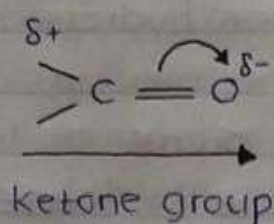 δ+
C = O δ-
ketone group